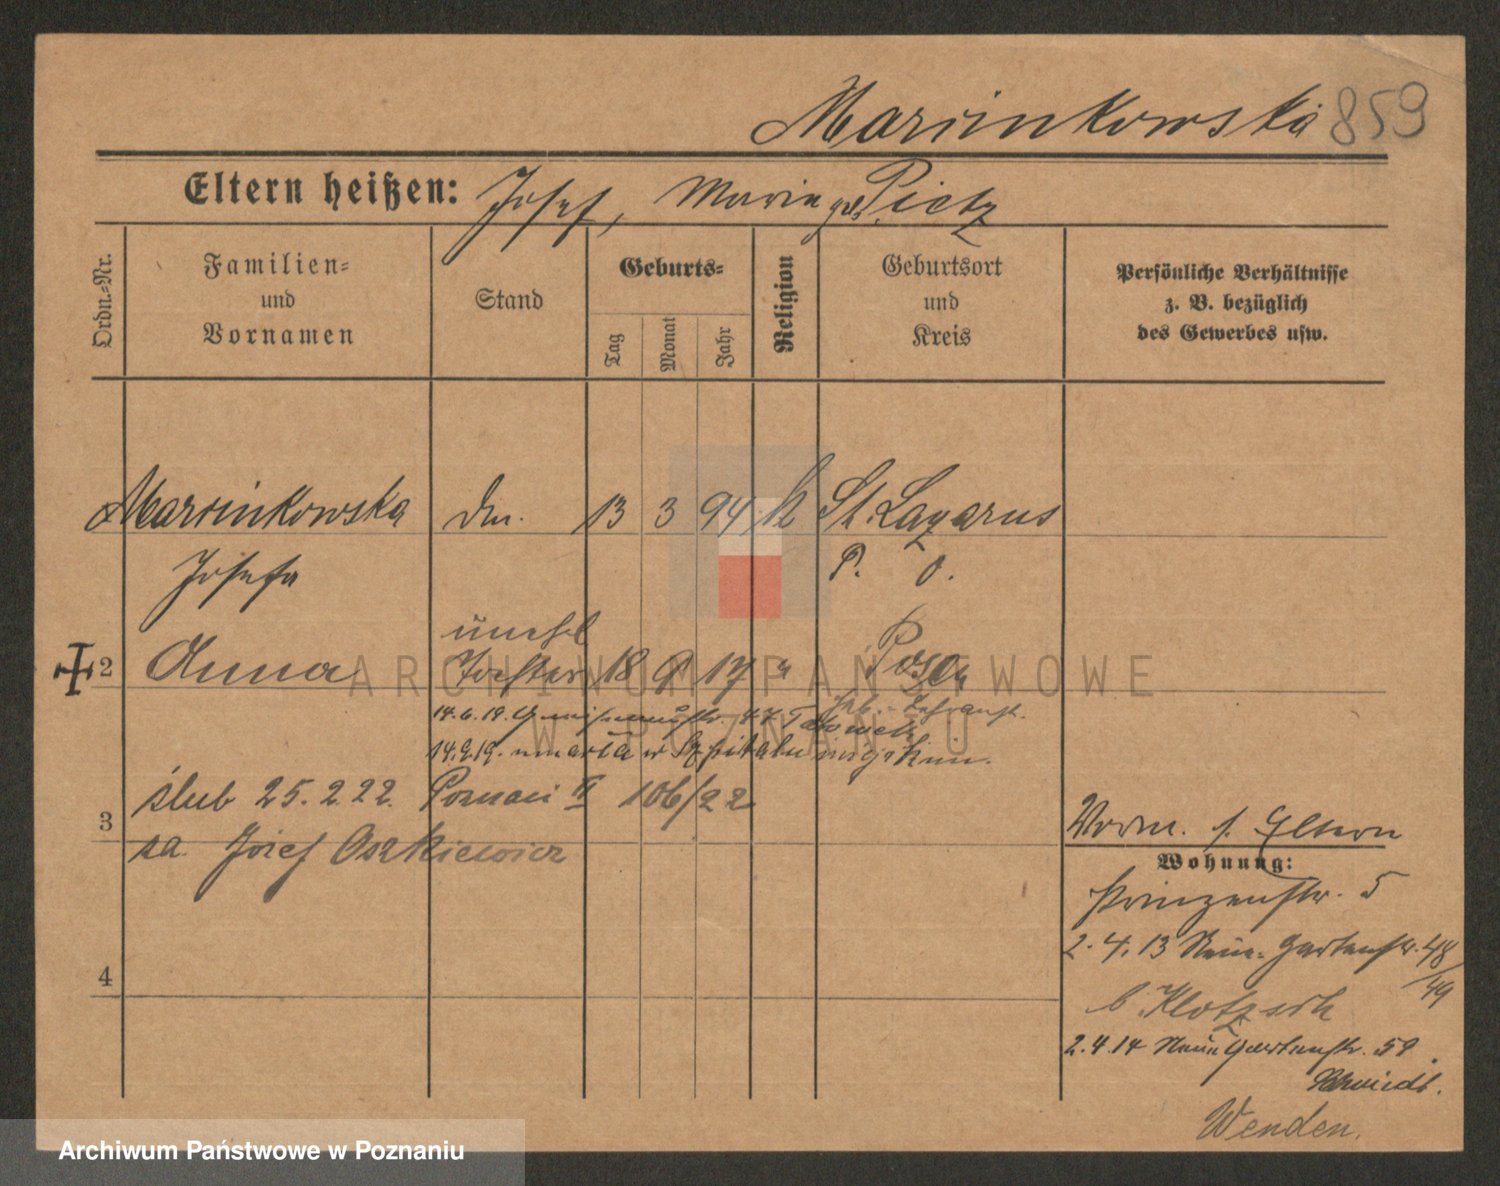 Marcinkowska 859
Eltern heißen: Josef, Maria geb. Pietz
Ordn.-Nr.
Familien-
und
Vornamen
Stand
Geburts-
Tag
Monat
Jahr
Religion
Geburtsort
und
Kreis
Persönliche Verhältnisse
z. B. bezüglich
des Gewerbes usw.
Marcinkowska Dm. 13 3 94 k St. Lazarus
Josefa P. O.
unehl
2 Anna Tochter 18 9 17 " Posen
14.6.19.
14.9.19. umarła w Szpitalu miejskim.
ślub 25.2.22. Poznań II 106/22
3
za Józef Oszkiewicz
4
Vorm. s. Eltern
Wohnung:
Prinzenstr. 5
2.4.13 Neue Gartenstr. 48/49
b. Klotzsch
2.4.14 Neue Gartenstr. 59.
Schmidt.
Wenden.
ARCHIWUM PAŃSTWOWE
W POZNANIU
Archiwum Państwowe w Poznaniu